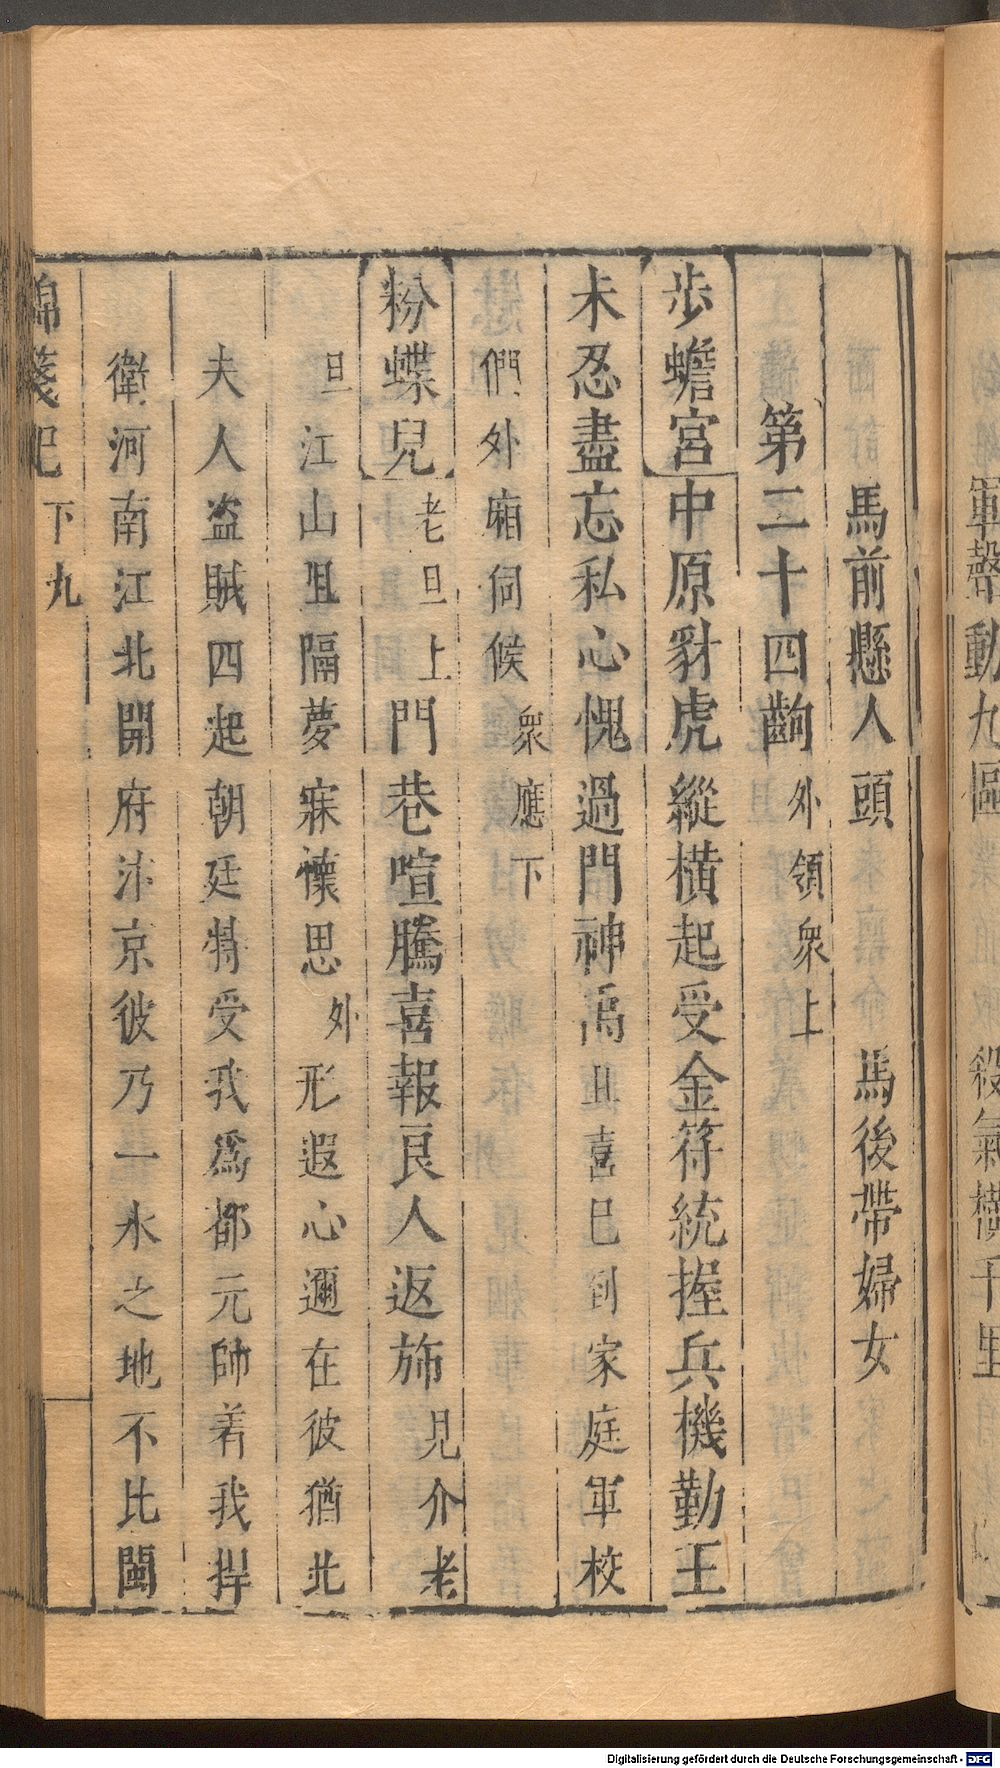 軍聲動九區　殺氣橫千里
馬前懸人頭　馬後帶婦女
第二十四齣　外領衆上
步蟾宮　中原豺虎縱橫起受金符統握兵機勤王
未忍盡忘私心愧過門神禹　且喜已到家庭軍校
們外廂伺候　衆應下
粉蝶兒　老旦上　門巷喧騰喜報良人返斾　見介老
旦　江山阻隔夢寐懷思　外　形遐心邇在彼猶北
夫人盗賊四起朝廷特受我爲都元帥着我捍
衛河南江北開府汴京彼乃一水之地不比閩
錦箋記　下　九
Digitalisierung gefördert durch die Deutsche Forschungsgemeinschaft - DFG